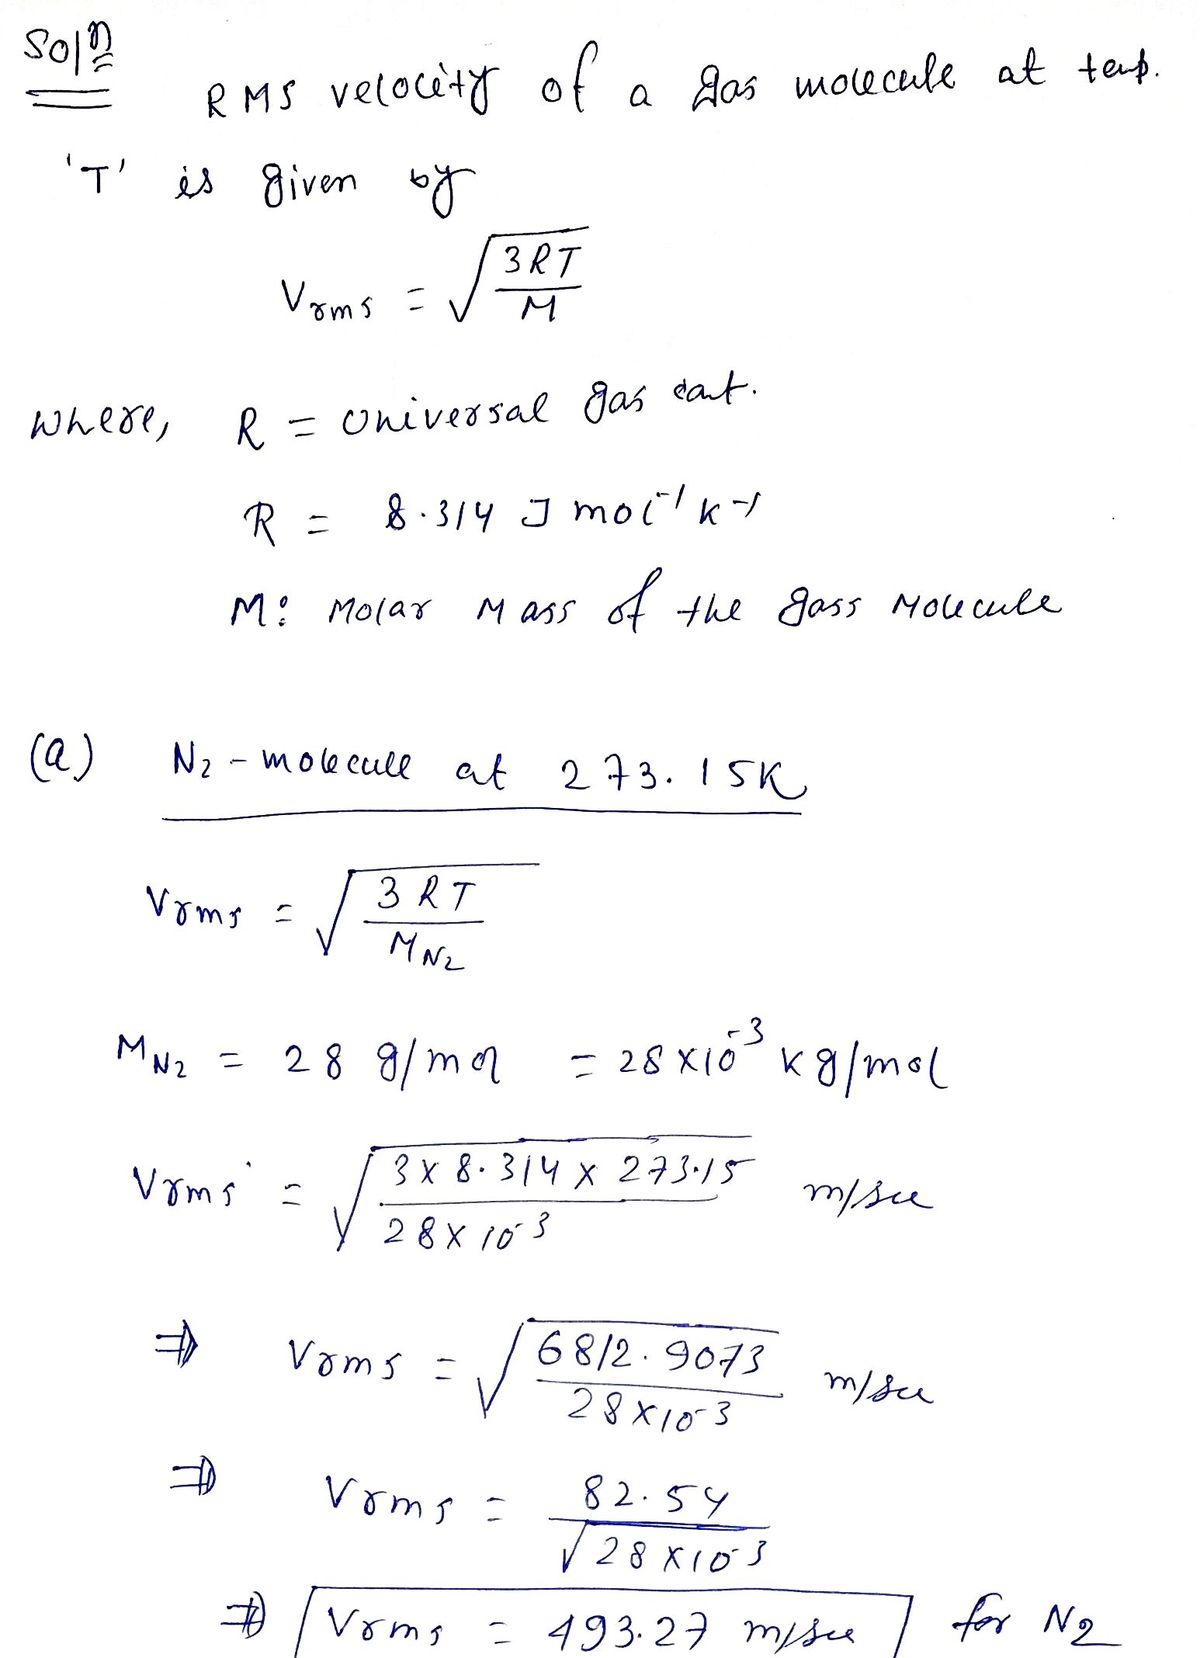 Solⁿ
RMS velocity of a gas molecule at temp.
'T' is given by
Vrms = √(3RT/M)
where, R = Universal gas cont.
R = 8.314 J mol⁻¹ K⁻¹
M: Molar Mass of the gass Molecule
(a) N₂ - molecule at 273.15K
Vrms = √(3RT/M_N₂)
M_N₂ = 28 g/mol = 28×10⁻³ kg/mol
Vrms = √(3×8.314×273.15/28×10⁻³) m/sec
⇒ Vrms = √(6812.9073/28×10⁻³) m/sec
⇒ Vrms = 82.54/√(28×10⁻³)
⇒ Vrms = 493.27 m/sec for N₂